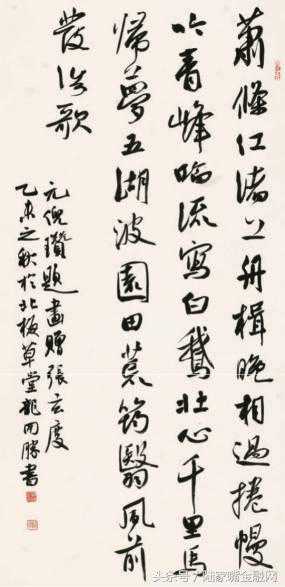 蕭條江渚上舟楫晚相過捲幔
吟青峰臨流寫白鵝壯心千里馬
歸夢五湖波園田荒筠翳風前
發浩歌
元倪瓚題畫贈張玄度
乙未之秋於北板草堂龍開勝書
头条号/陆家嘴金融网